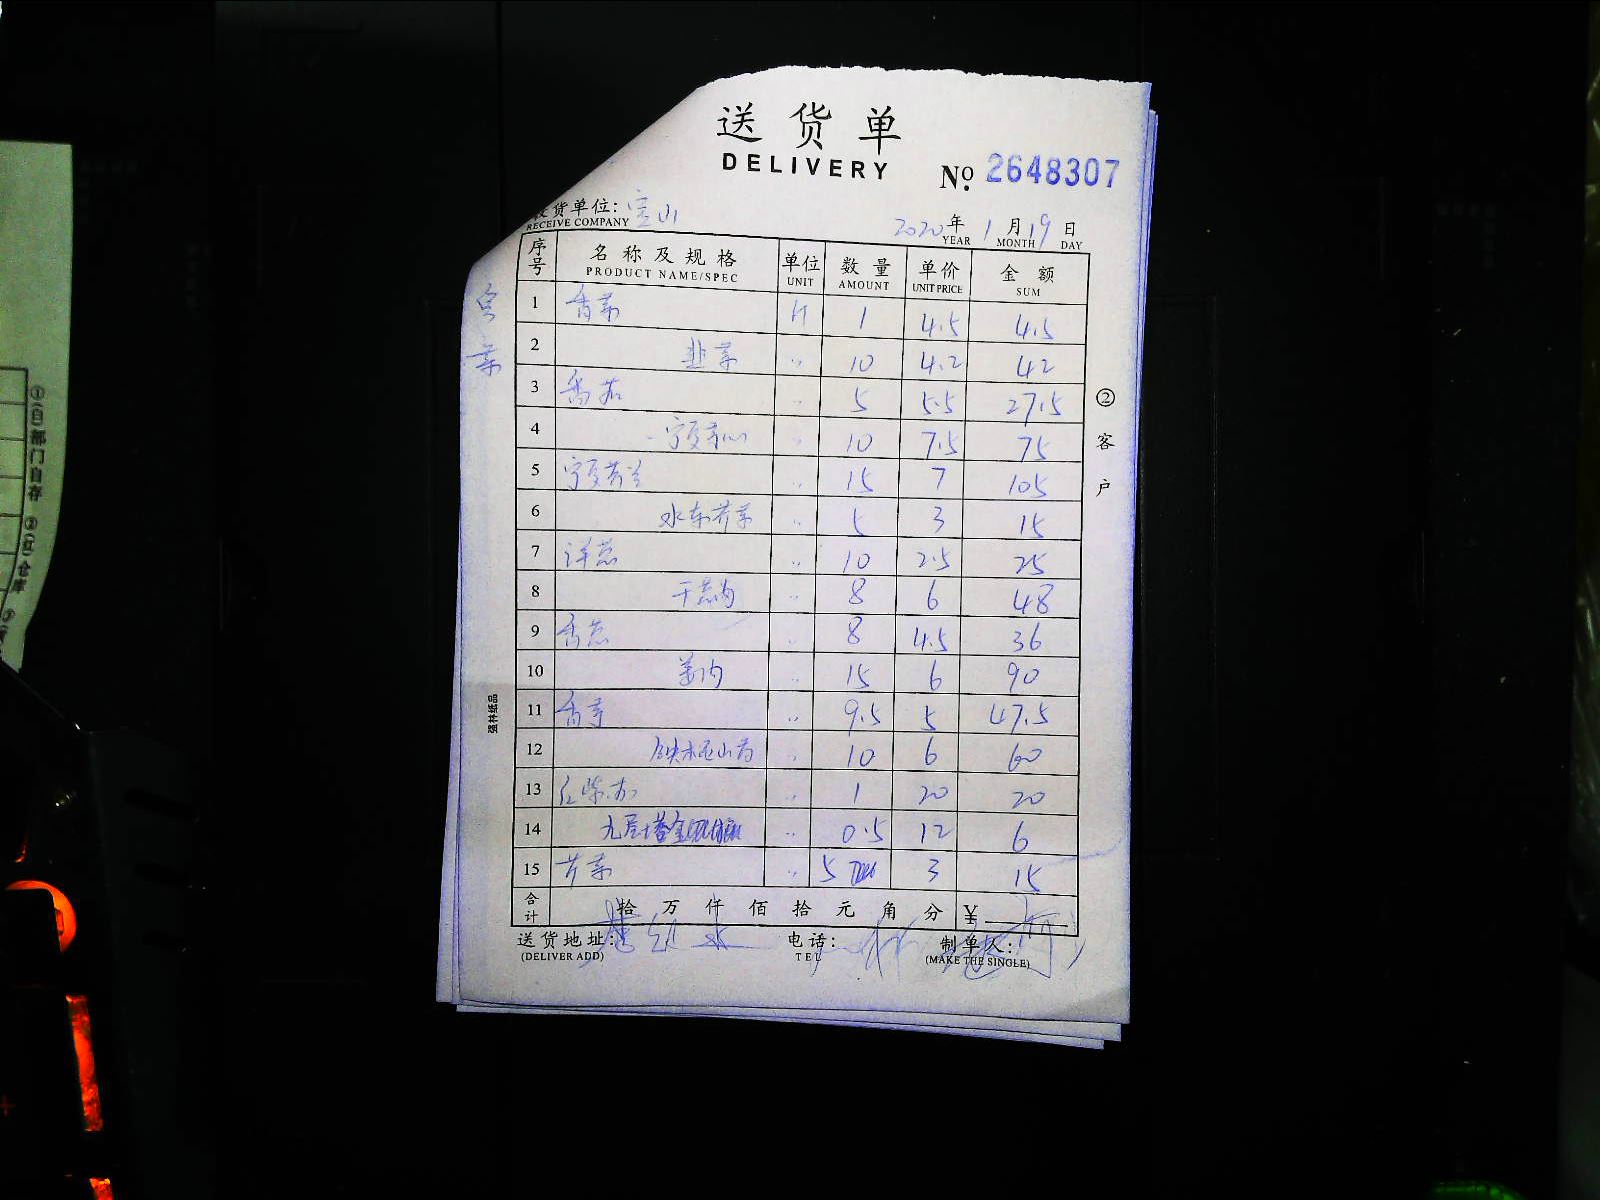 送货单
DELIVERY
No. 2648307
货单位:
RECEIVE COMPANY
2020年 1月19日
YEAR MONTH DAY
序号 名称及规格 单位 数量 单价 金额
PRODUCT NAME/SPEC UNIT AMOUNT UNIT PRICE SUM
1 香菜 斤 1 4.5 4.5
2 韭菜 〃 10 4.2 42
3 番茄 〃 5 5.5 27.5
4 宁夏菜心 〃 10 7.5 75
5 宁夏芥兰 〃 15 7 105
6 水东芥菜 〃 5 3 15
7 洋葱 〃 10 2.5 25
8 干葱肉 〃 8 6 48
9 香葱 〃 8 4.5 36
10 姜肉 〃 15 6 90
11 香芋 〃 9.5 5 47.5
12 铁棍山药 〃 10 6 60
13 红紫苏 〃 1 20 20
14 九层塔 〃 0.5 12 6
15 芹菜 〃 5 3 15
合计 拾 万 仟 佰 拾 元 角 分 ¥
送货地址: 电话: 制单人:
(DELIVER ADD) TEL (MAKE THE SINGLE)
②客户
强林纸品
①(白)部门自存 ②(红)仓库